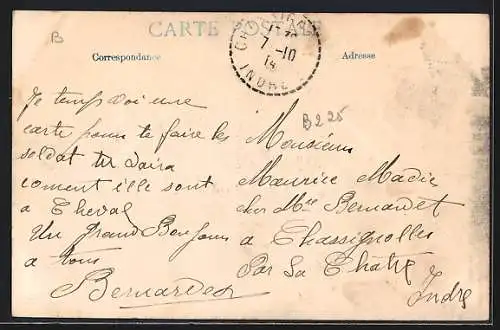 B
CARTE POSTALE
Correspondance
Adresse
7-10
14
INDRE
B225
Je temp Voi une
carte pour te faire les
soldat tu Vaira
coment ille sont
a Cheval
Un grand Bonjour
a tous
Bernardet
Monsieur
Maurice Madic
chez Mr Bernardet
a Chassignolles
Par La Chatre
Indre